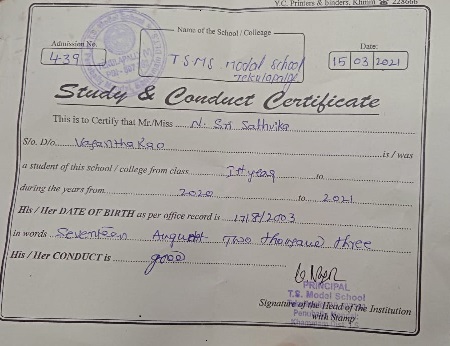 Y.C. Printers & Binders, Khmm ☎ 228666
Name of the School / Colleage
Admission No.
439
TSMS modal school
Date:
15 03 2021
Study & Conduct Certificate
This is to Certify that Mr./Miss N. Sri Sathvika
S/o. D/o. Vasantha Rao is / was
a student of this school / college from class Ist year to
during the years from 2020 to 2021
His / Her DATE OF BIRTH as per office record is 17/8/2003
in words Seventeen August Two thousand three
His / Her CONDUCT is good
PRINCIPAL
T.S. Model School
Signature of the Head of the Institution
with Stamp